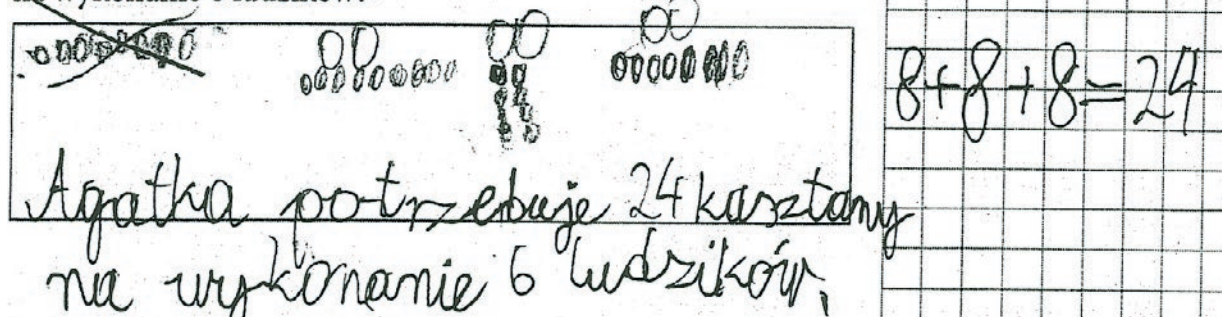 8+8+8=24
Agatka potrzebuje 24 kasztany
na wykonanie 6 ludzików.